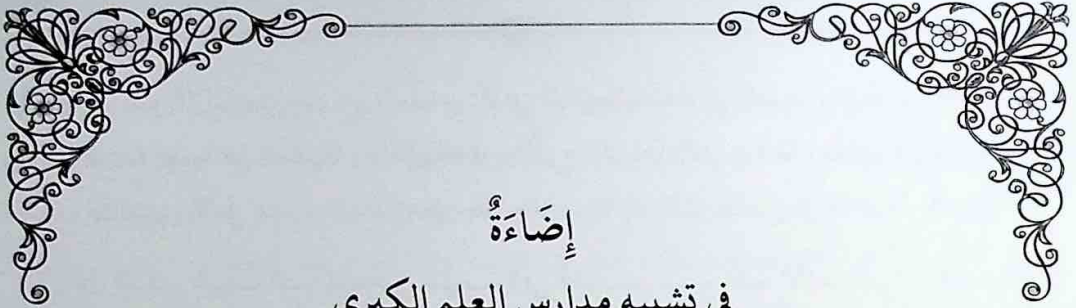 إِضَاءَةٌ
في تشبيه مدارس العلم الكبرى